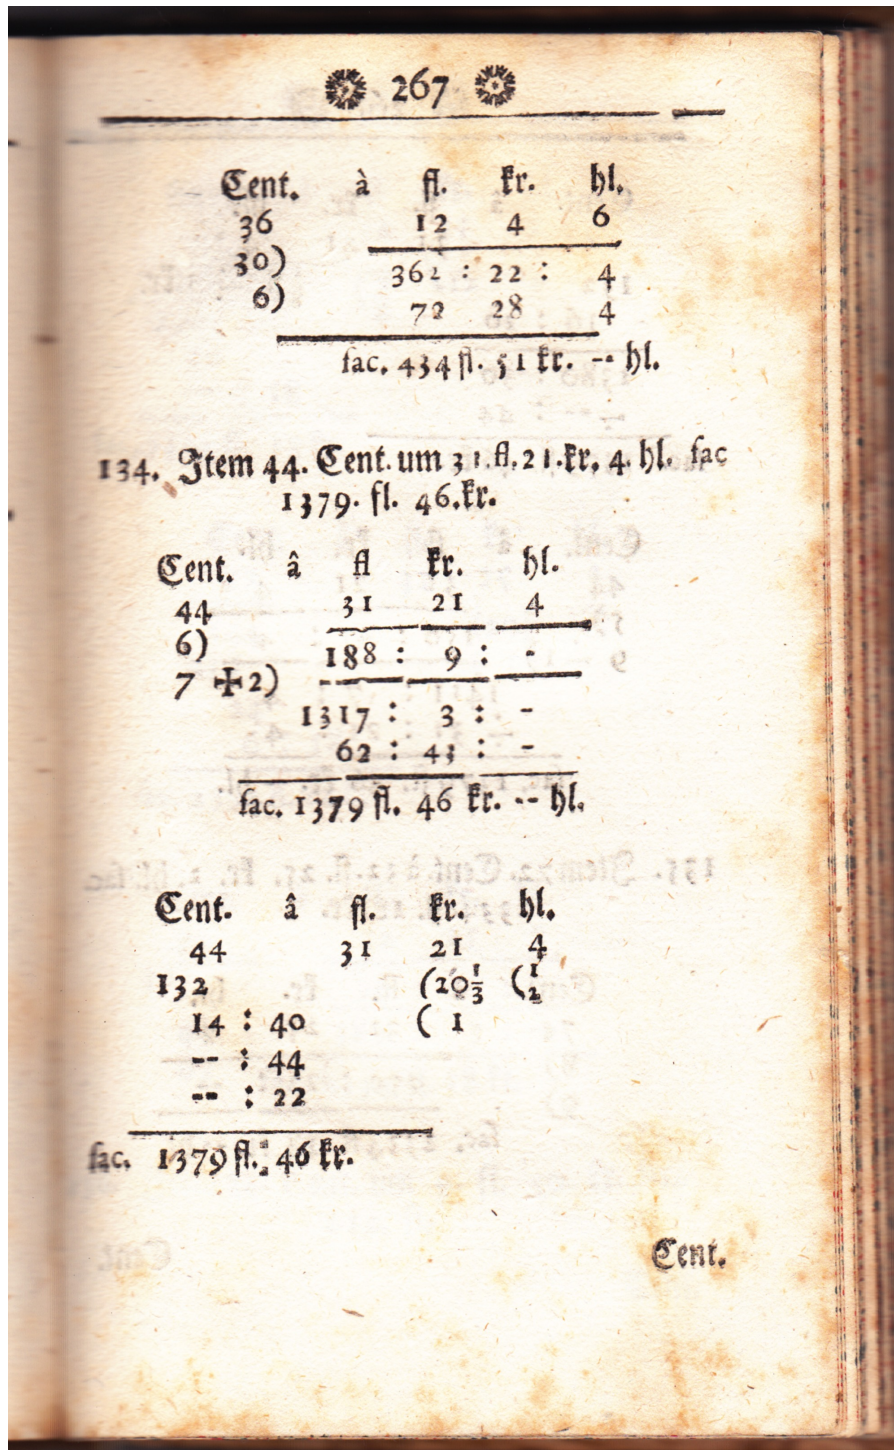 267
Cent. à fl. kr. hl.
36 12 4 6
30) 362 : 22 : 4
6) 72 28 4
fac. 434 fl. 51 kr. -- hl.
134. Item 44. Cent. um 31. fl. 21. kr. 4. hl. fac
1379. fl. 46. kr.
Cent. â fl kr. hl.
44 31 21 4
6) 188 : 9 : -
7 ✠ 2)
1317 : 3 : -
62 : 43 : -
fac. 1379 fl. 46 kr. -- hl.
Cent. â fl. kr. hl.
44 31 21 4
132 (20⅓ (½
14 : 40 ( 1
-- : 44
-- : 22
fac. 1379 fl. : 46 kr.
Cent.